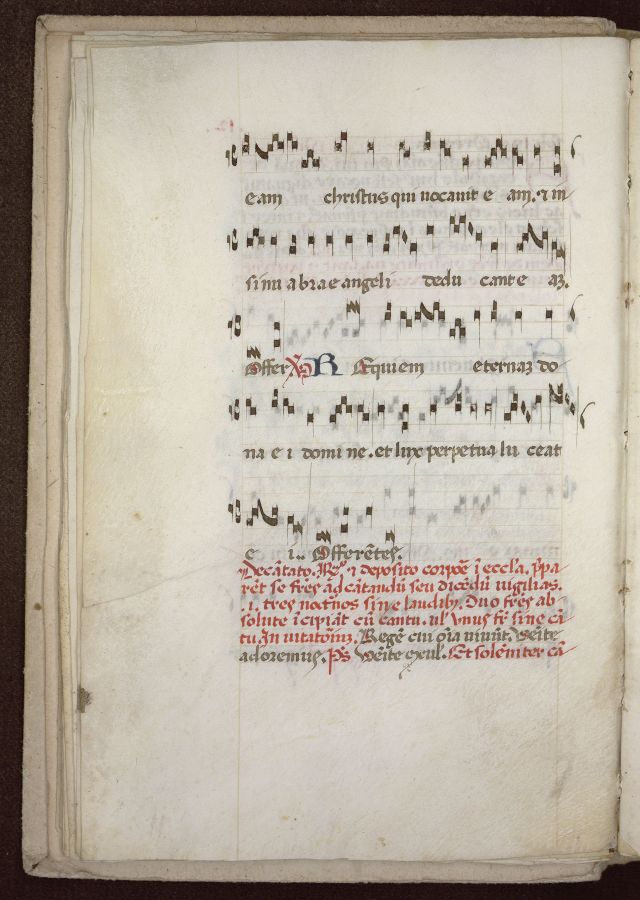 eam christus qui uocauit e am. ⁊ in
sinu abrae angeli dedu cant e aꝫ.
Offer. X̄. REquiem eternaꝫ do
na e i domi ne. et lux perpetua lu ceat
e i.. Offerētes.
Decātato. ꝶ. ⁊ deposito corpoē ī eccl'a. p̄pa
rēt se fr̄es ad cātandū seu dicēdū uigilias.
.i. tres noct'nos sine laudibꝫ. Duo fr̄es ab
solute īcipiāt cū cantu. ul' vnus fr̄ sine cā
tu. In uitatoriuꝫ. Regē cui oīa uiuūt. Venite
adoremus. p̄s Venite exul'. Et solēniter cā